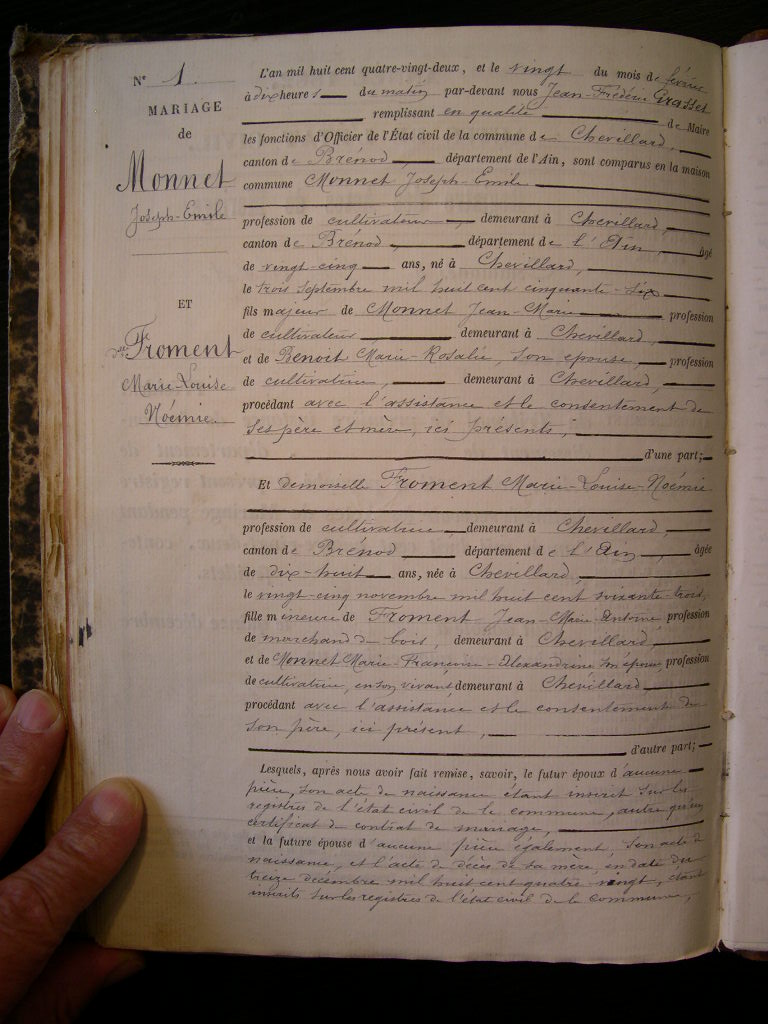 N° 1.
MARIAGE
de
Monnet
Joseph-Emile
ET
Dlle Froment
Marie-Louise
Noémie.
L'an mil huit cent quatre-vingt-deux, et le vingt du mois de février
à dix heures du matin par-devant nous Jean-Frédéric Grasset
remplissant en qualité de Maire
les fonctions d'Officier de l'État civil de la commune de Chevillard,
canton de Brénod, département de l'Ain, sont comparus en la maison
commune Monnet Joseph-Emile
profession de cultivateur, demeurant à Chevillard,
canton de Brénod département de l'Ain, âgé
de vingt-cinq ans, né à Chevillard,
le trois septembre mil huit cent cinquante-six
fils majeur de Monnet Jean-Marie profession
de cultivateur demeurant à Chevillard,
et de Benoit Marie-Rosalie, son épouse, profession
de cultivatrice, demeurant à Chevillard,
procédant avec l'assistance et le consentement de
ses père et mère, ici présents,
d'une part;
Et demoiselle Froment Marie-Louise-Noémie
profession de cultivatrice demeurant à Chevillard,
canton de Brénod département de l'Ain, âgée
de dix-huit ans, née à Chevillard,
le vingt-cinq novembre mil huit cent soixante-trois,
fille mineure de Froment Jean-Marie-Antoine profession
de marchand de bois, demeurant à Chevillard,
et de Monnet Marie-Françoise-Alexandrine son épouse, profession
de cultivatrice, en son vivant demeurant à Chevillard
procédant avec l'assistance et le consentement de
son père, ici présent,
d'autre part;
Lesquels, après nous avoir fait remise, savoir, le futur époux d'aucune
pièce, son acte de naissance étant inscrit sur les
registres de l'état civil de la commune, autre qu'un
certificat de contrat de mariage,
et la future épouse d'aucune pièce également, son acte de
naissance, et l'acte de décès de sa mère, en date du
treize décembre mil huit cent quatre-vingt, étant
inscrits sur les registres de l'état civil de la commune,